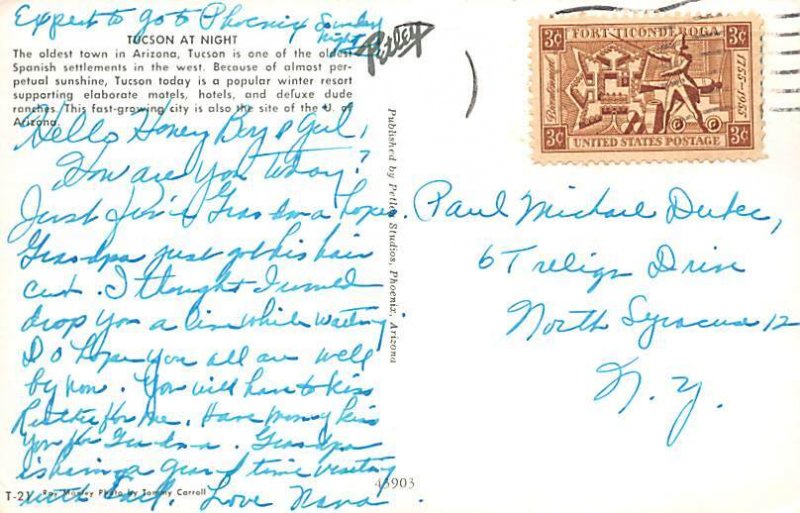 Expect to go to Phoenix Sunday
night
PETLEY
TUCSON AT NIGHT
The oldest town in Arizona, Tucson is one of the oldest
Spanish settlements in the west. Because of almost per-
petual sunshine, Tucson today is a popular winter resort
supporting elaborate motels, hotels, and deluxe dude
ranches. This fast-growing city is also the site of the U. of
Arizona.
Hello Honey Boy & Girl,
How are you today?
Just fine Grandma hopes.
Grandpa just got his hair
cut. I thought I would
drop you a line while waiting.
I do hope you all are well
by now. You will have to kiss
for me. Have mommy kiss
you for Grandma. Grandpa
is having a grand time visiting
with Carl. Love Nana.
T-21 Ray Manley Photo by Tommy Carroll
Published by Petley Studios, Phoenix, Arizona
45903
3¢ FORT TICONDEROGA 3¢
Bicentennial
1755-1955
3¢ UNITED STATES POSTAGE 3¢
Paul Michael
6 Drive
North Syracuse 12
N. Y.